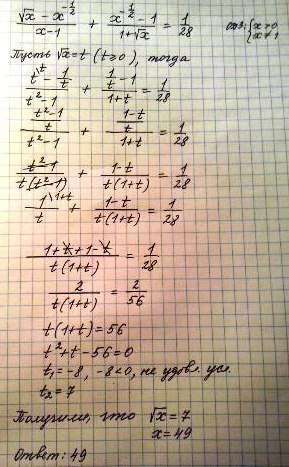 (√x - x^(-1/2))/(x-1) + (x^(-1/2) - 1)/(1+√x) = 1/28   ОДЗ: {x>0 x≠1
Пусть √x = t (t≥0), тогда
(t - 1/t)/(t²-1) + (1/t - 1)/(1+t) = 1/28
((t²-1)/t)/(t²-1) + ((1-t)/t)/(1+t) = 1/28
(t²-1)/(t(t²-1)) + (1-t)/(t(1+t)) = 1/28
1/t \1+t + (1-t)/(t(1+t)) = 1/28
(1+t+1-t)/(t(1+t)) = 1/28
2/(t(1+t)) = 2/56
t(1+t) = 56
t²+t-56=0
t₁=-8, -8<0, не удовл. усл.
t₂=7
Получили, что √x = 7
x=49
Ответ: 49